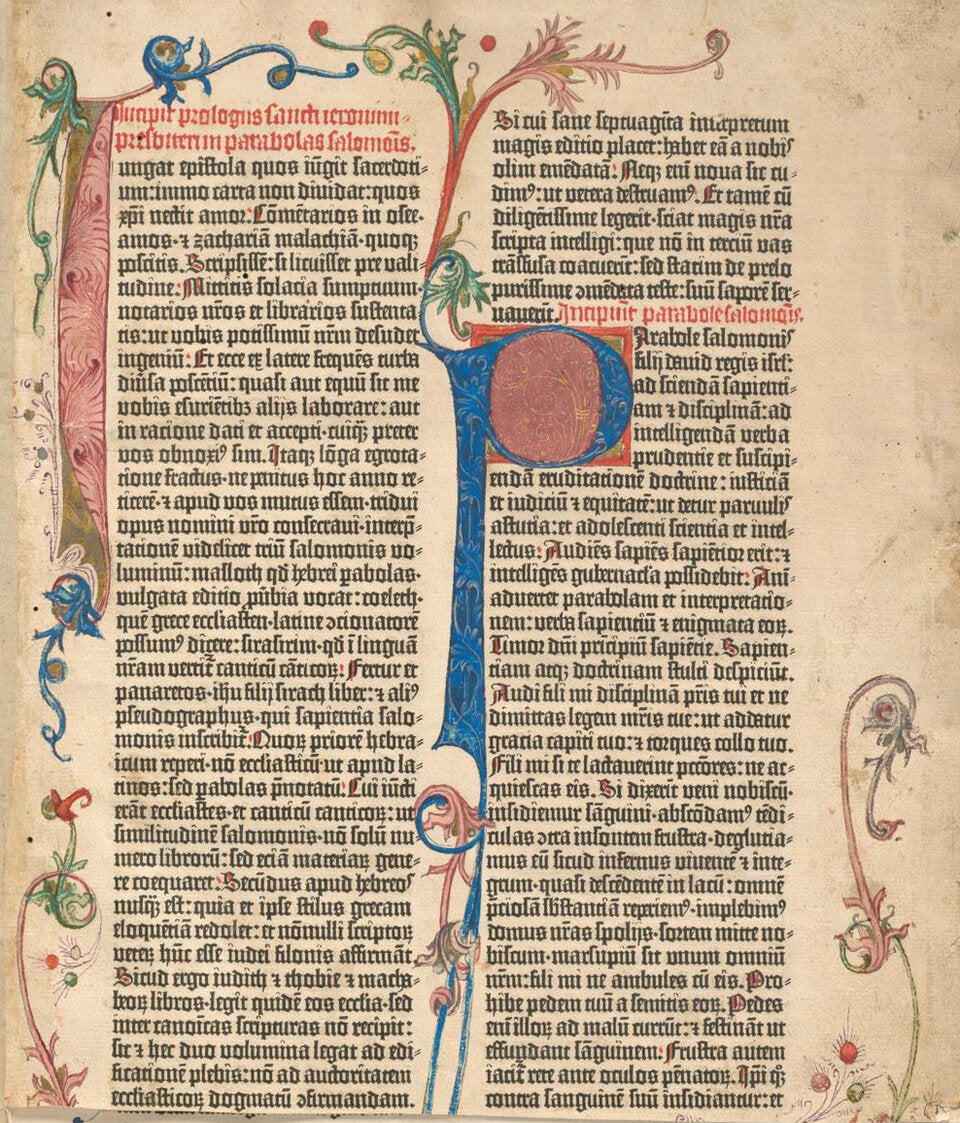 Incipit prologus sancti ieronimi
presbiteri in parabolas salomonis.
Iungat epistola quos iūgit sacerdoti-
um: immo carta non dividat: quos
xp̄i nectit amor. Cōmētarios in osee.
amos. ⁊ zachariā malachiā. quoqꝫ
poscitis. Scripsissē: si licuisset pre vali-
tudine. Mittitis solacia sumptuum.
notarios nr̄os et librarios sustenta-
tis: ut vobis potissimū nr̄m desudet
ingeniū. Et ecce ex latere frequēs turba
diūsa poscētiū: quasi aut equū sit me
vobis esuriētibꝫ alijs laborare: aut
in racione dati et accepti. cuiqꝫ preter
vos obnoxiꝰ sim. Itaqꝫ lōga egrota-
tione fractus. ne penitus hoc anno re-
ticerē. ⁊ apud vos mutus essem. tridui
opus nomini vr̄o consecraui. interp̄-
tationē videlicet triū salomonis vo-
luminū: masloth qd̄ hebrei ꝑabolas.
vulgata editio ꝓūbia vocat: coeleth.
quē grece ecclīasten. latine ↄcionatorē
possumꝰ dicere: sirasirim. qd̄ ī linguā
nr̄am vertit̄ canticū cāticoꝝ. Fertur et
panaretos. ih̄u filij sirach liber: ⁊ aliꝰ
pseudographus. qui sapientia salo-
monis inscribit̄. Quoꝝ priorē hebra-
icum reperi. nō ecclīasticū ut apud la-
tinos: sed ꝑabolas p̄notatū. Cui iūcti
erāt ecclīastes. et canticū canticoꝝ: ut
similitudinē salomonis. nō solū nu-
mero librorū: sed eciā materiaꝝ gene-
re coequaret. Secūdus apud hebreoˢ
nusqꝫ est: quia et ipse stilus grecam
eloquētiā redolet: et nōnulli scriptoꝝ
veteꝝ hūc esse iudei filonis affirmāt.
Sicud ergo iudith ⁊ thobie ⁊ macha-
beoꝝ libros. legit quidē eos ecclīa. sed
inter canōicas scripturas nō recipit:
sic ⁊ hec duo volumina legat ad edi-
ficationē plebis: nō ad auctoritatem
ecclīasticoꝝ dogmatū ↄfirmandam.
Si cui sane septuagīta interpretum
magis editio placet: habet eā a nobiˢ
olim emēdatā. Neqꝫ eni̅ noua sic cu-
dimꝰ: ut vetera destruamꝰ. Et tamē cū
diligētissime legerit. sciat magis nr̄a
scripta intelligi: que nō in terciū vas
trāsfusa coacuerīt: sed statim de prelo
purissime ↄmēdata teste: suū saporē ser-
uauerīt. Incipiūt parabole salomoīs.
Parabole salomoniˢ
filij dauid regis isrl̄:
ad sciendā sapienti-
am ⁊ disciplinā: ad
intelligendā verba
prudentie et suscipi-
endā eruditationē doctrine: iusticiā
et iudiciū ⁊ equitatē: ut detur paruuliˢ
astutia: et adolescenti scientia et intel-
lectus. Audiēs sapiēs sapiētior erit: ⁊
intelligēs gubernac̄la possidebit. Ani-
aduertet parabolam et interpretatio-
nem: verba sapientiū ⁊ enigmata eoꝝ.
Timor dn̄i prīcipiū sapiētie. Sapien-
tiam atqꝫ doctrinam stulti despiciūt.
Audi fili mi disciplinā pr̄is tui et ne
dimittas legem mr̄is tue: ut addatur
gracia capiti tuo: ⁊ torques collo tuo.
Fili mi si te lactauerint pctōres: ne ac-
quiescas eis. Si dixerīt veni nobiscū.
insidiemur sāguini. abscōdamꝰ tēdi-
culas ↄtra insontem frustra. deglutia-
mus eū sicud infernus viuentē ⁊ inte-
grum. quasi descēdentē in lacū: omnē
p̄ciosā sb̄stantiā reperiemꝰ. implebimꝰ
domus nr̄as spolijs. sortem mitte no-
biscum. marsupiū sit vnum omniū
nr̄m: fili mi ne ambules cū eis. Pro-
hibe pedem tuū a semitis eoꝝ. Pedes
eni̅ illoꝝ ad malū currūt: ⁊ festināt ut
effundant sāguinem. Frustra autem
iacit̄ rete ante oculos pēnatoꝝ. Ipi̅ qꝫ
contra sanguinē suū insidiantur: et